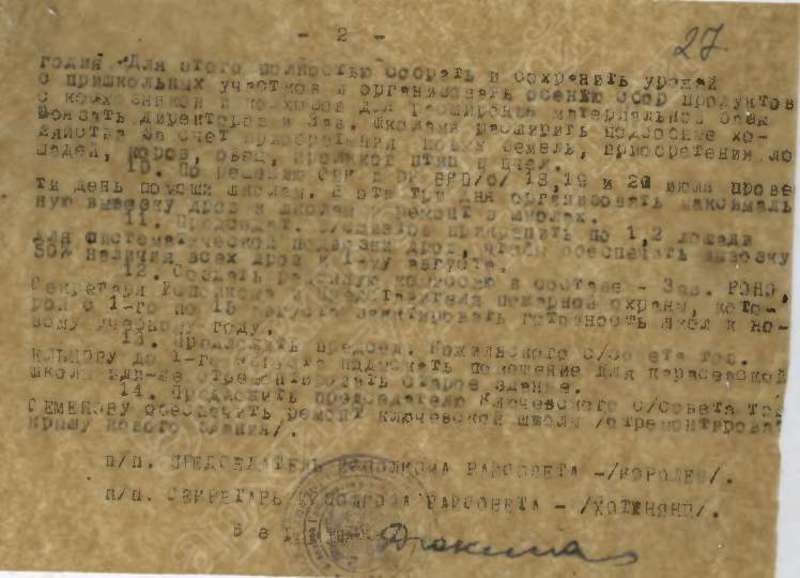 - 2 -
27
годия. Для этого полностью собрать и сохранить урожай
с пришкольных участков и организовать осенью сбор продуктов
с колхозников и колхозов для расширения материальной базы
Обязать директоров и Зав. школами расширить подсобные хо-
зяйства за счет приобретения новых земель, приобретения ло-
шадей, коров, овец, птиц и пчел.
10. По решению СНК и ВКП/б/ 18,19 и 20 июля прове
ти день помощи школам. В эти три дня организовать максималь
ную вывозку дров к школам и ремонт в школах.
11. Председат. с/советов прикрепить по 1,2 лошади
для систематической подвозки дров, чтобы обеспечить вывозку
50% наличия всех дров к 1-му августа.
12. Создать комиссию в составе - Зав. РОНО,
Секретаря и представителя пожарной охраны, кото-
рой с 1-го по 15 августа готовность школ к но-
вому учебному году.
13. Предложить председ. с/совета тов.
до 1-го августа подыскать помещение для карасевской
школы или-же отремонтировать старое здание.
14. Предложить председателю Ключевского с/совета тов
СЕМЕНОВУ обеспечить ремонт ключевской школы /отремонтироват
крышу нового здания/.
п/п. ПРЕДСЕДАТЕЛЬ ИСПОЛКОМА РАЙСОВЕТА -/КОРОЛЕВ/.
п/п. СЕКРЕТАРЬ ИСПОЛКОМА РАЙСОВЕТА - /